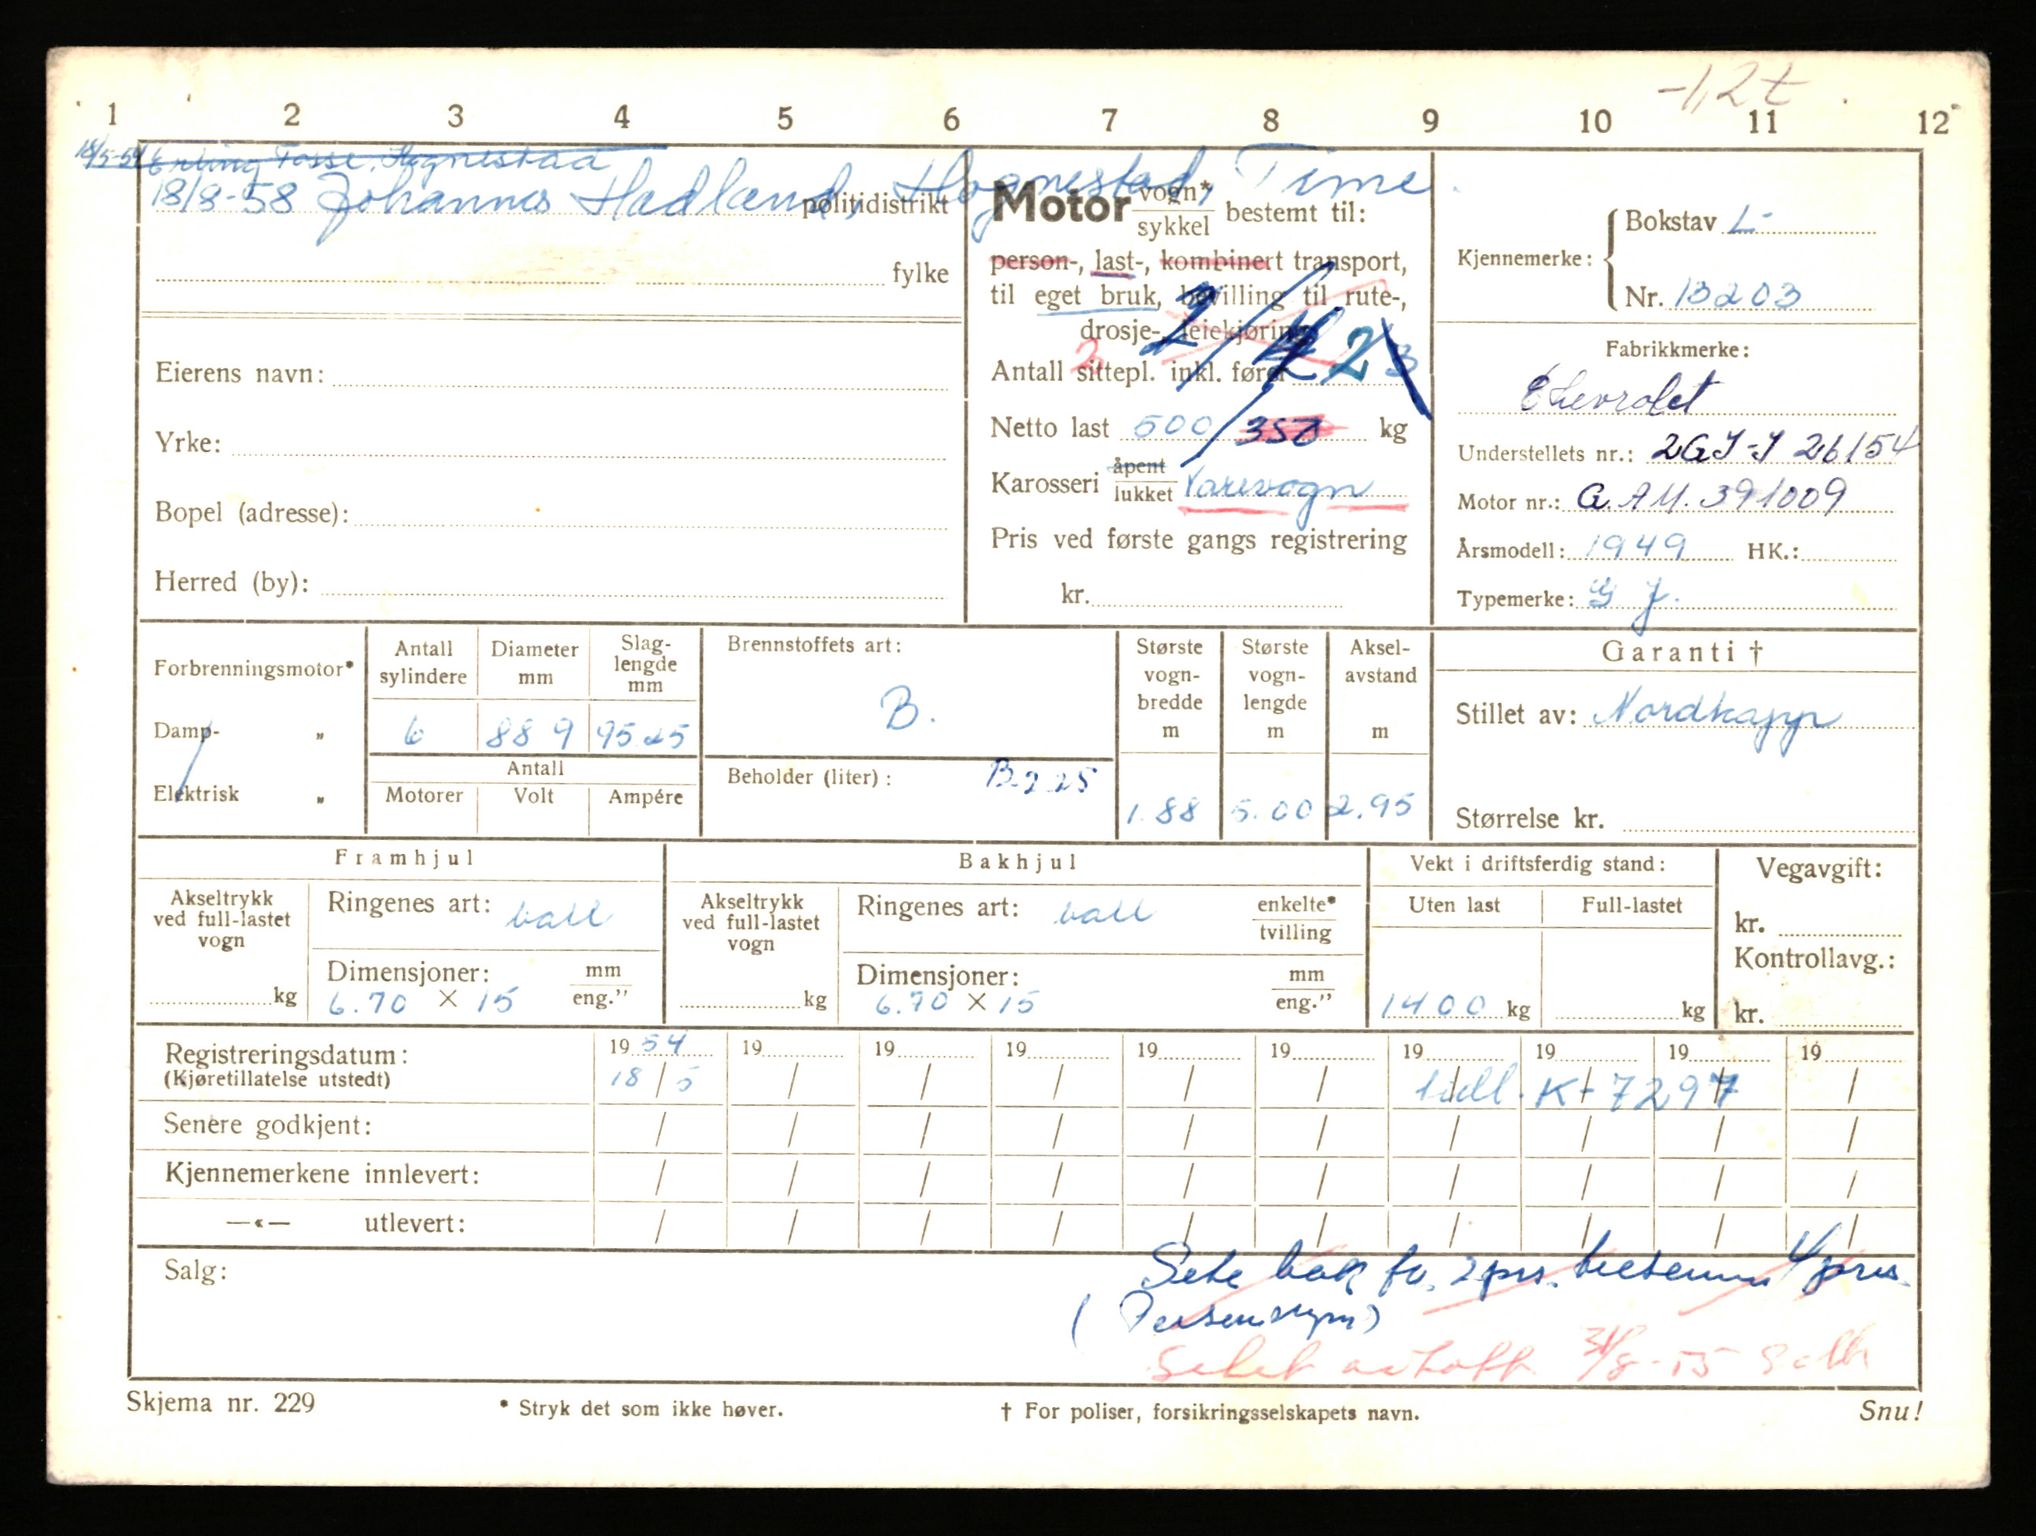 -1,2t
1 2 3 4 5 6 7 8 9 10 11 12
18/5-54 Erling Fosse, Hognestad
18/8-58 Johannes Hadland, Hognestad, Time.
politidistrikt
fylke
Eierens navn:
Yrke:
Bopel (adresse):
Herred (by):
Motor vogn* sykkel bestemt til:
person-, last-, kombinert transport,
til eget bruk, bevilling til rute-,
drosje-, leiekjøring
Antall sittepl. inkl. fører 2 2 2 3
Netto last 500 350 kg
Karosseri åpent lukket Varevogn
Pris ved første gangs registrering
kr.
Kjennemerke: Bokstav L-
Nr. 13203
Fabrikkmerke:
Chevrolet
Understellets nr.: 2GJ-J 26154
Motor nr.: G.A.M. 391009
Årsmodell: 1949 HK.:
Typemerke: G J.
Forbrenningsmotor*
Damp- „
Elektrisk „
Antall sylindere 6
Diameter mm 88 9
Slag-lengde mm 95.25
Antall
Motorer Volt Ampére
Brennstoffets art:
B.
Beholder (liter): B.2.25
Største vogn-bredde m 1.88
Største vogn-lengde m 5.00
Aksel-avstand m 2.95
Garanti †
Stillet av: Nordkapp
Størrelse kr.
Framhjul
Akseltrykk ved full-lastet vogn
kg
Ringenes art: ball
Dimensjoner: mm eng."
6.70 × 15
Bakhjul
Akseltrykk ved full-lastet vogn
kg
Ringenes art: ball enkelte* tvilling
Dimensjoner: mm eng."
6.70 × 15
Vekt i driftsferdig stand:
Uten last Full-lastet
1400 kg kg
Vegavgift:
kr.
Kontrollavg.:
kr.
Registreringsdatum: 1954 19 19 19 19 19 19 19 19 19
(Kjøretillatelse utstedt) 18/5 / / / / / / / / /
K-7297
Senere godkjent: / / / / / / / / / /
Kjennemerkene innlevert: / / / / / / / / / /
—«— utlevert: / / / / / / / / / /
Salg:
Sete bak for 2 prs. 4 prs.
Setet 31/8-55
Skjema nr. 229
* Stryk det som ikke høver.
† For poliser, forsikringsselskapets navn.
Snu!